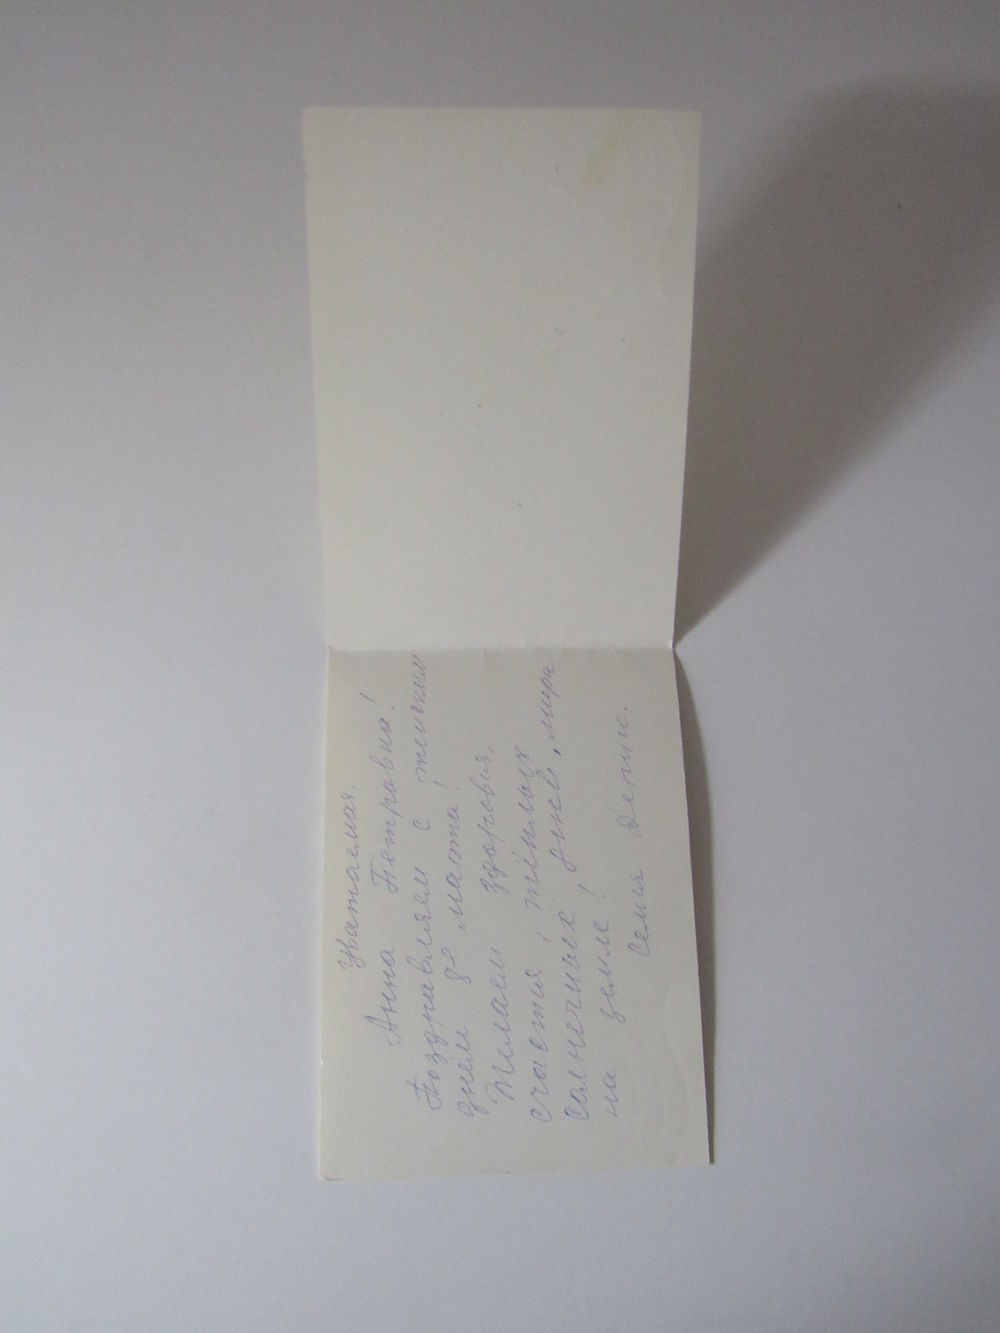 Уважаемая,
Анна Петровна!
Поздравляем с женским
днём 8е марта!
Желаем здоровья,
счастья, тёплых
солнечных дней, мира
на земле!
Семья